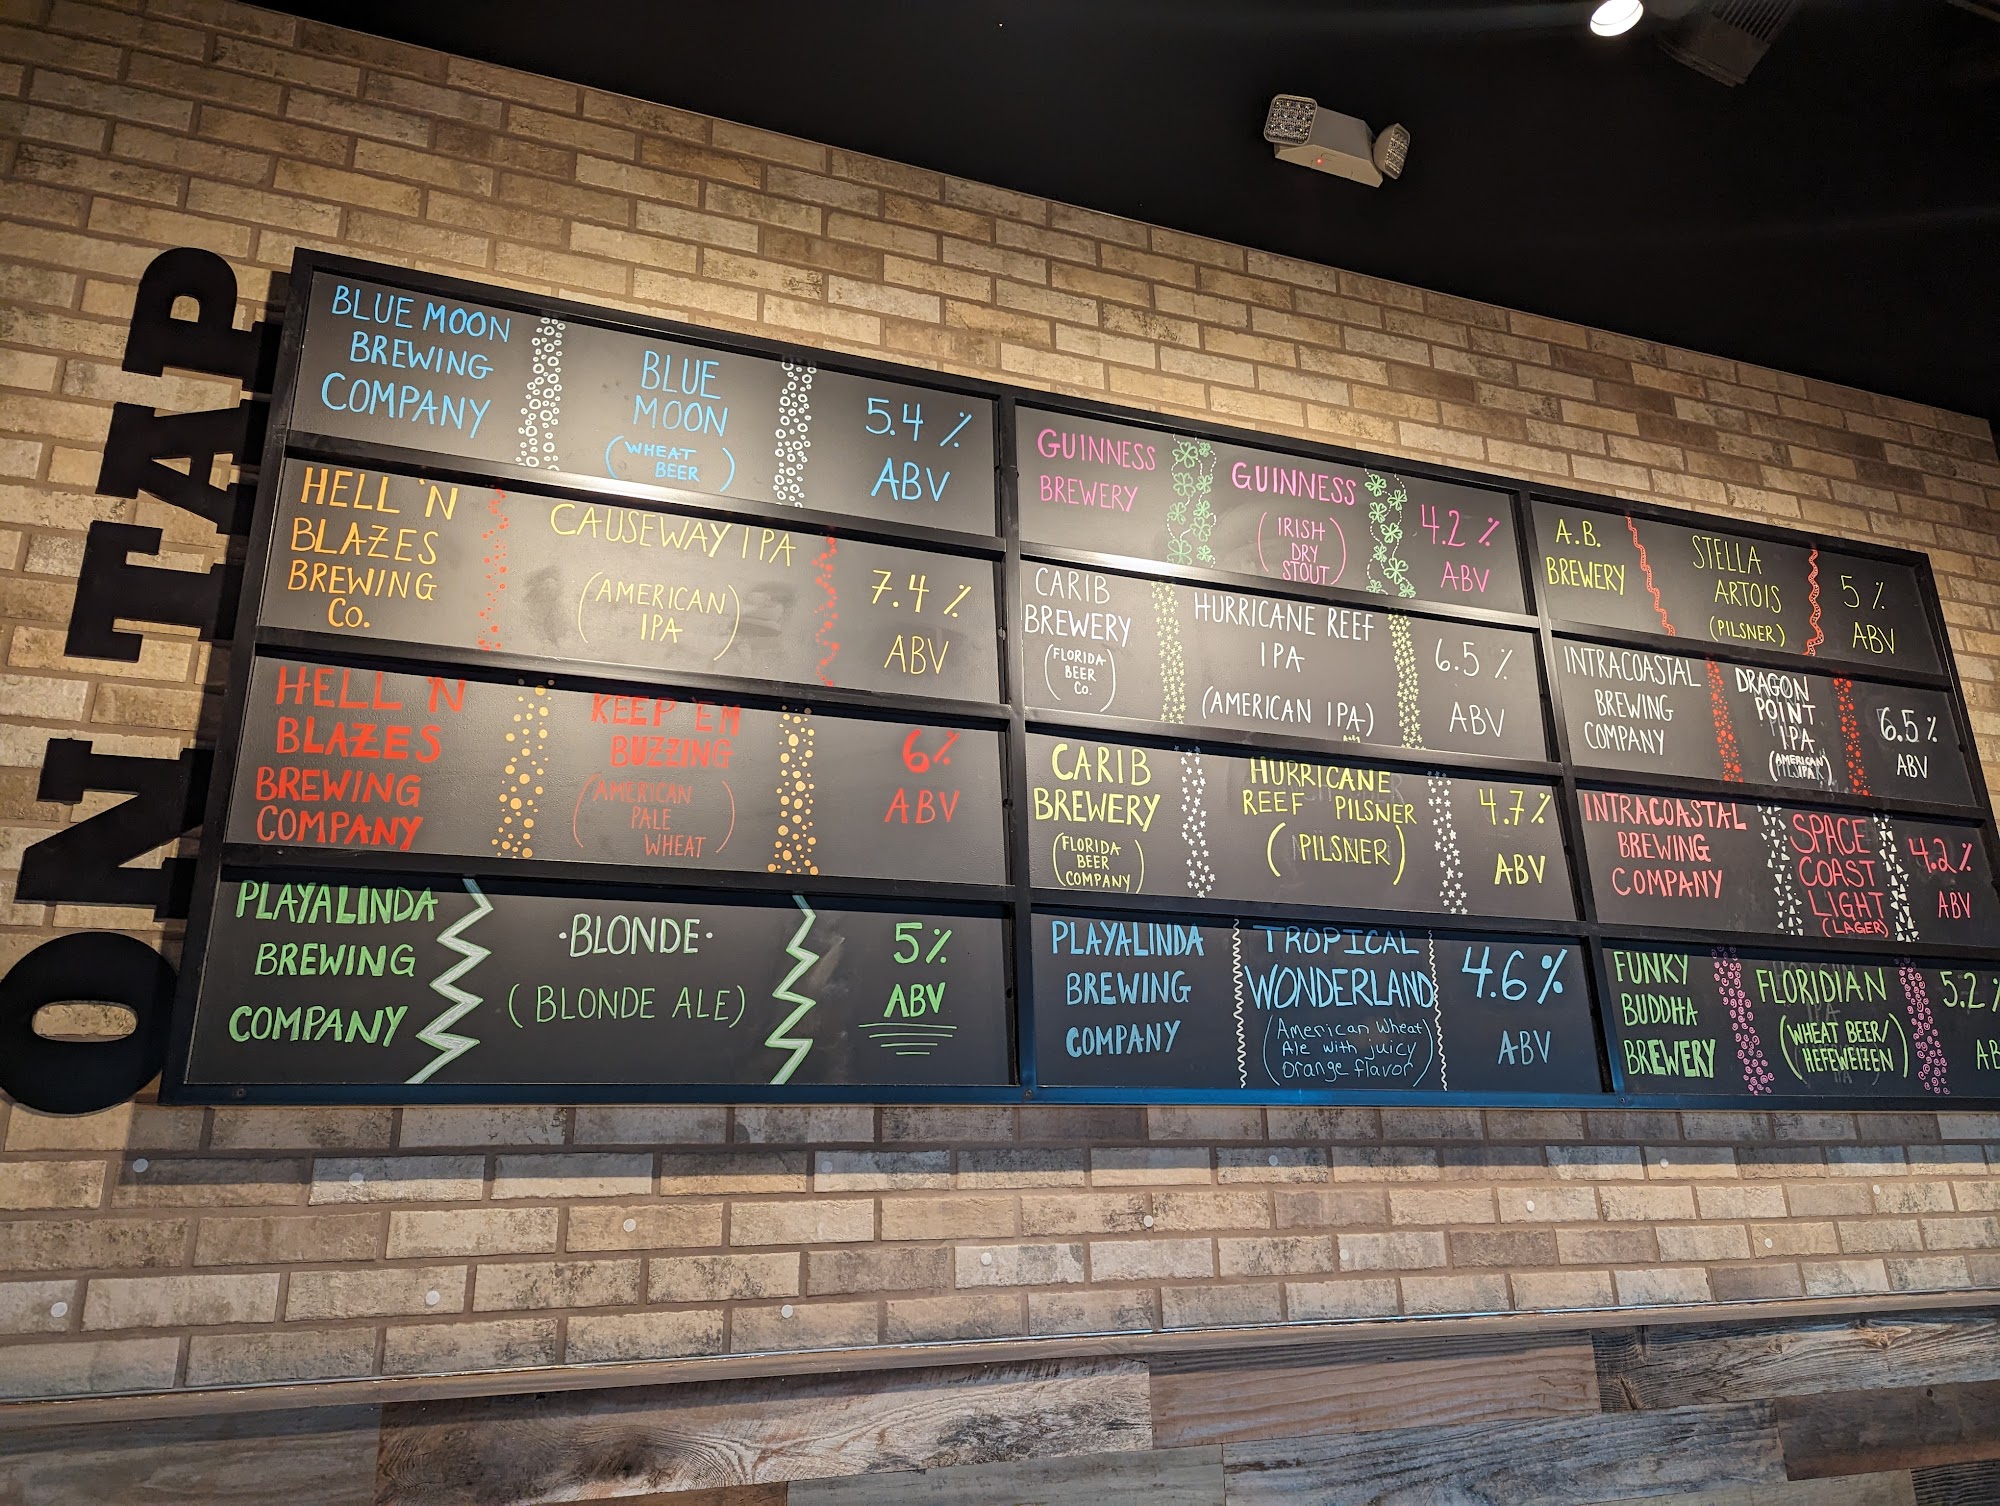 ON TAP
BLUE MOON
BREWING
COMPANY
BLUE
MOON
(WHEAT
BEER)
5.4%
ABV
HELL 'N
BLAZES
BREWING
Co.
CAUSEWAY IPA
(AMERICAN)
IPA
7.4%
ABV
HELL 'N
BLAZES
BREWING
COMPANY
KEEP 'EM
BUZZING
(AMERICAN
PALE
WHEAT)
6%
ABV
PLAYALINDA
BREWING
COMPANY
·BLONDE·
(BLONDE ALE)
5%
ABV
GUINNESS
BREWERY
GUINNESS
(IRISH
DRY
STOUT)
4.2%
ABV
CARIB
BREWERY
(FLORIDA
BEER
Co.)
HURRICANE REEF
IPA
(AMERICAN IPA)
6.5%
ABV
CARIB
BREWERY
(FLORIDA
BEER
COMPANY)
HURRICANE
REEF PILSNER
(PILSNER)
4.7%
ABV
PLAYALINDA
BREWING
COMPANY
TROPICAL
WONDERLAND
(American Wheat
Ale with juicy
Orange flavor)
4.6%
ABV
A.B.
BREWERY
STELLA
ARTOIS
(PILSNER)
5%
ABV
INTRACOASTAL
BREWING
COMPANY
DRAGON
POINT
IPA
(AMERICAN
IPA)
6.5%
ABV
INTRACOASTAL
BREWING
COMPANY
SPACE
COAST
LIGHT
(LAGER)
4.2%
ABV
FUNKY
BUDDHA
BREWERY
FLORIDIAN
(WHEAT BEER/
HEFEWEIZEN)
5.2%
AB